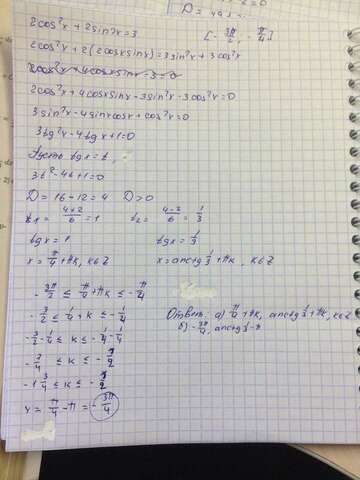 2cos²x + 2sin2x = 3 [-3π/2; -π/4]
2cos²x + 2(2cosxsinx) = 3sin²x + 3cos²x
2cos²x + 4cosxsinx - 3 = 0
2cos²x + 4cosxsinx - 3sin²x - 3cos²x = 0
3sin²x - 4sinxcosx + cos²x = 0
3tgx² - 4tgx + 1 = 0
Пусть tgx = t,
3t² - 4t + 1 = 0
D = 16 - 12 = 4 D > 0
t1 = (4+2)/6 = 1 t2 = (4-2)/6 = 1/3
tgx = 1 tgx = 1/3
x = π/4 + πk, k∈Z x = arctg 1/3 + πk, k∈Z
-3π/2 ≤ π/4 + πk ≤ -π/4
-3/2 ≤ 1/4 + k ≤ -1/4
-3/2 - 1/4 ≤ k ≤ -1/4 - 1/4
-7/4 ≤ k ≤ -1/2
-1 3/4 ≤ k ≤ -1/2
x = π/4 - π = -3π/4
Ответ: а) π/4 + πk, arctg 1/3 + πk, k∈Z
б) -3π/4, arctg 1/3 - π